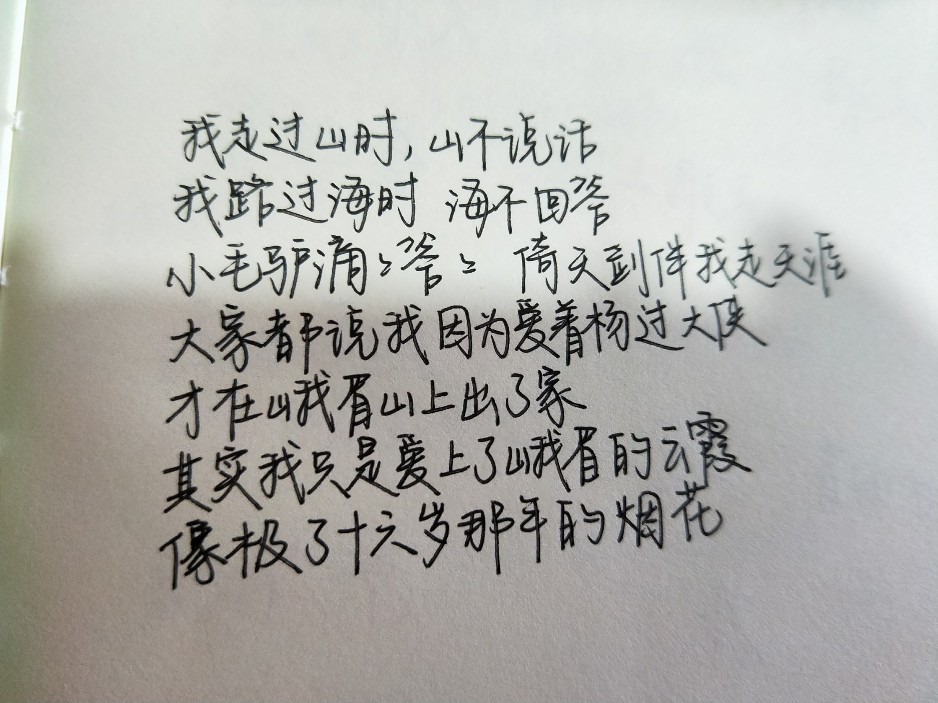 我走过山时,山不说话
我路过海时 海不回答
小毛驴滴々答々 倚天剑伴我走天涯
大家都说我因为爱着杨过大侠
才在峨眉山上出了家
其实我只是爱上了峨眉的云霞
像极了十六岁那年的烟花